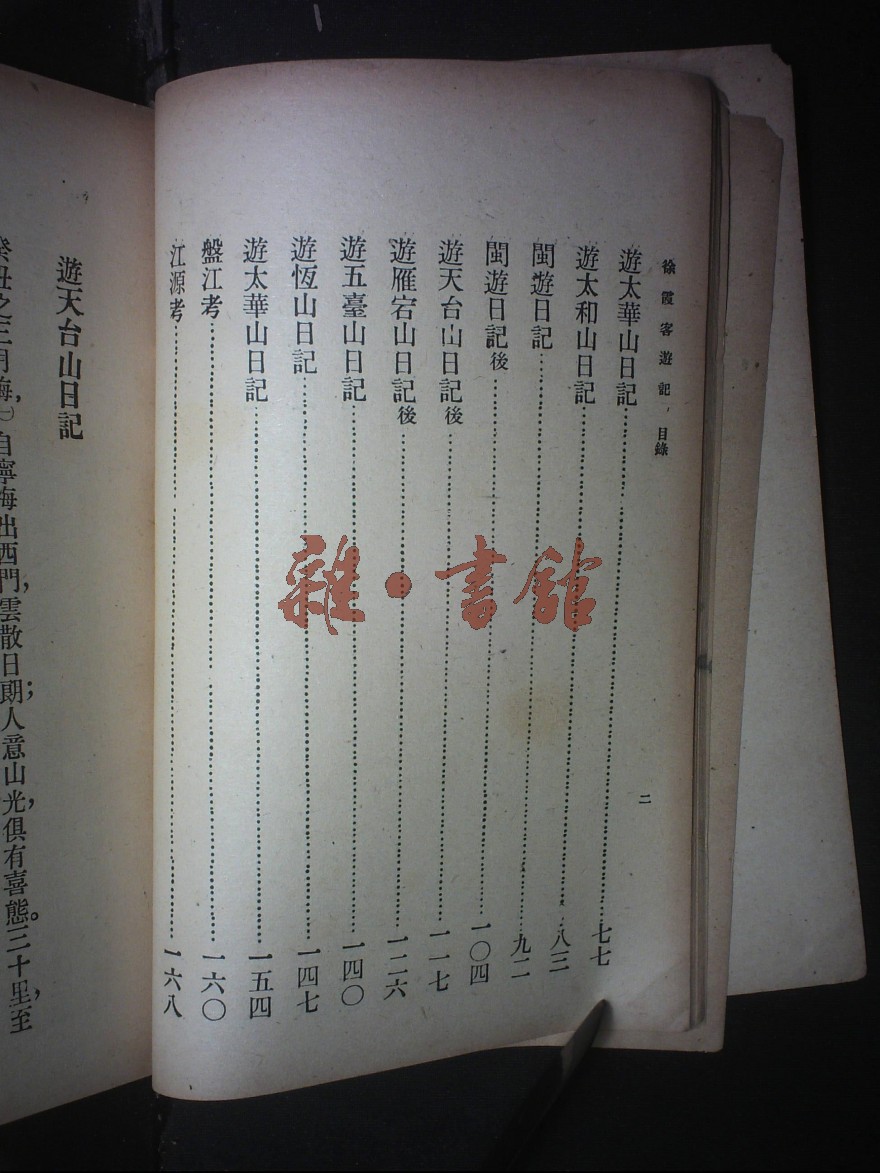 徐霞客遊記 目錄
遊太華山日記……七七
遊太和山日記……八三
閩遊日記……九二
閩遊日記後……一〇四
遊天台山日記後……一一七
遊雁宕山日記後……一二六
遊五臺山日記……一四〇
遊恆山日記……一四七
遊太華山日記……一五四
盤江考……一六〇
江源考……一六八
二
遊天台山日記
癸丑之三月晦,㈠自寧海出西門,雲散日朗;人意山光,俱有喜態。三十里,至
雜·書館